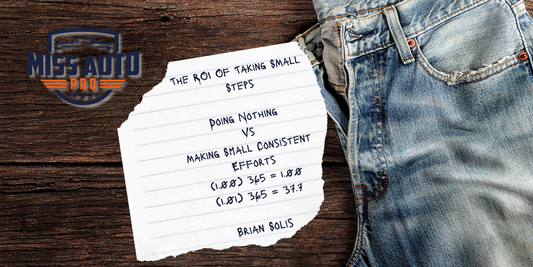 MISS AUTO
PRO
THE ROI OF TAKING SMALL
STEPS
DOING NOTHING
VS
MAKING SMALL CONSISTENT
EFFORTS
(1.00) 365 = 1.00
(1.01) 365 = 37.7
BRIAN SOLIS